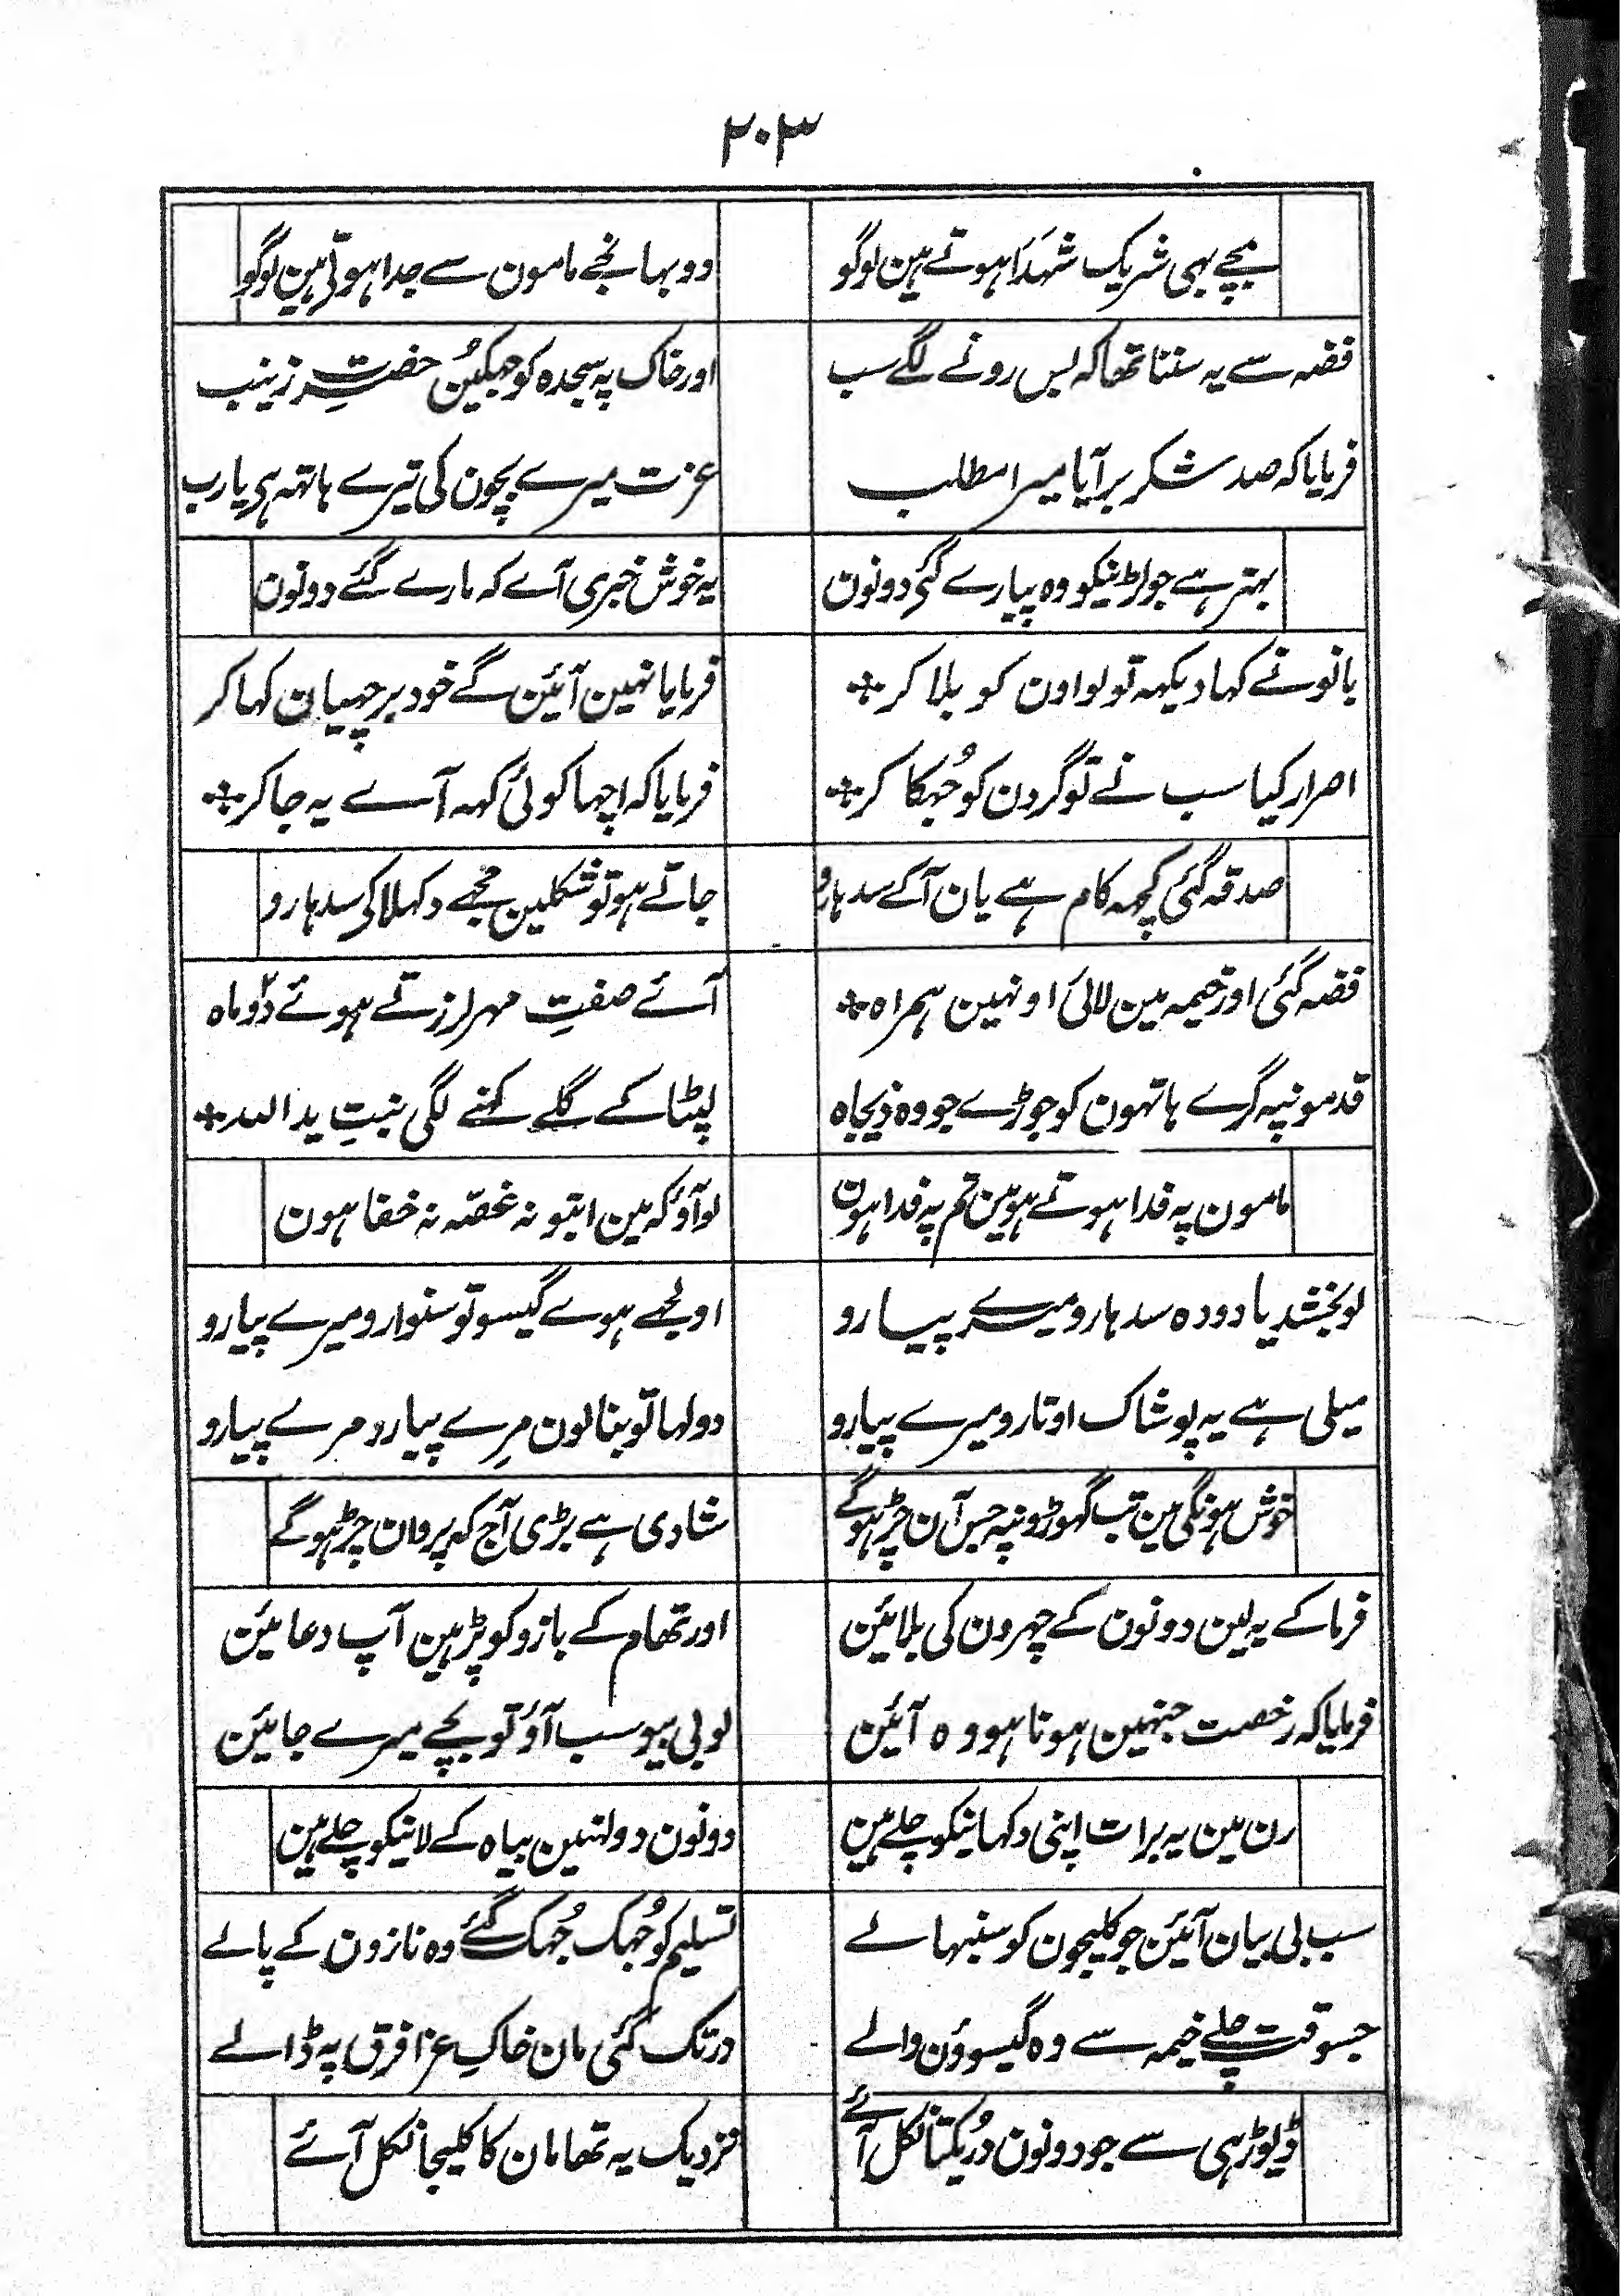 ۲۰۳
بچے بہی شریک شہدا ہوتے ہین لوگو دو بہانجے مامون سے جدا ہوتی ہین لوگو
فضہ سے یہ سننا تھا کہ بس رونے لگے سب اور خاک پہ سجدہ کو جہکیُن حضرتِ زینب
فرمایا کہ صد شکر بر آیا میرا مطلب عزت میرے بچون کی تیرے ہاتہہ ہی یا رب
بہتر ہے جو لڑنیکو وہ پیارے گئی دونون یہ خوش خبری آے کہ مارے گئے دونون
بانو نے کہا دیکہہ تو لو اون کو بلا کر فرمایا نہین آئین گے خود برچہیان کہا کر
اصرار کیا سب نے تو گردن کو جُہکا کر فرمایا کہ اچہا کوئی کہہ آے یہ جا کر
صدقہ گئی کچہہ کام ہے یان آکے سدہارو جاتے ہو تو شکلین مجھے دکہلا کی سدہارو
فضہ گئی اور خیمہ مین لائی اونہین ہمراہ آئے صفتِ مہر لرزتے ہوئے دو ماہ
قدمونپہ گرے ہاتہون کو جوڑے جو وہ ذیجاہ لپٹا کے گلے کہنے لگی بنتِ ید اللہ
مامون پہ فدا ہوتے ہو مین تم پہ فدا ہون لو آؤ کہ مین ابتو نہ غصّہ نہ خفا ہون
لو بخشدیا دودہ سدہارو میرے پیارو اولجہے ہوے گیسو تو سنوارو میرے پیارو
میلی ہے یہ پوشاک اوتارو میرے پیارو دولہا تو بنا لون مِرے پیارو مرے پیارو
خوش ہونگی مین تب گہوڑونپہ جس آن چڑہو گے شادی ہے بڑی آج کہ پروان چڑہو گے
فرما کے یہ لین دونون کے چہرون کی بلائین اور تھام کے بازو کو پڑہین آپ دعائین
فرمایا کہ رخصت جنہین ہونا ہو وہ آئین لو بی بیو سب آؤ تو بچے میرے جائین
رن مین یہ برات اپنی دکہانیکو چلے ہین دونون دولہنین بیاہ کے لانیکو چلے ہین
سب بی بیان آئین جو کلیجون کو سنبہالے تسلیم کو جُہک جُہک گئے وہ نازون کے پالے
جسوقت چلے خیمہ سے وہ گیسوؤن والے در تک گئی مان خاکِ عزا فرق پہ ڈالے
ڈیوڑہی سے جو دونون دُرِ یکتا نکل آئے نزدیک یہ تھا مان کا کلیجا نکل آئے